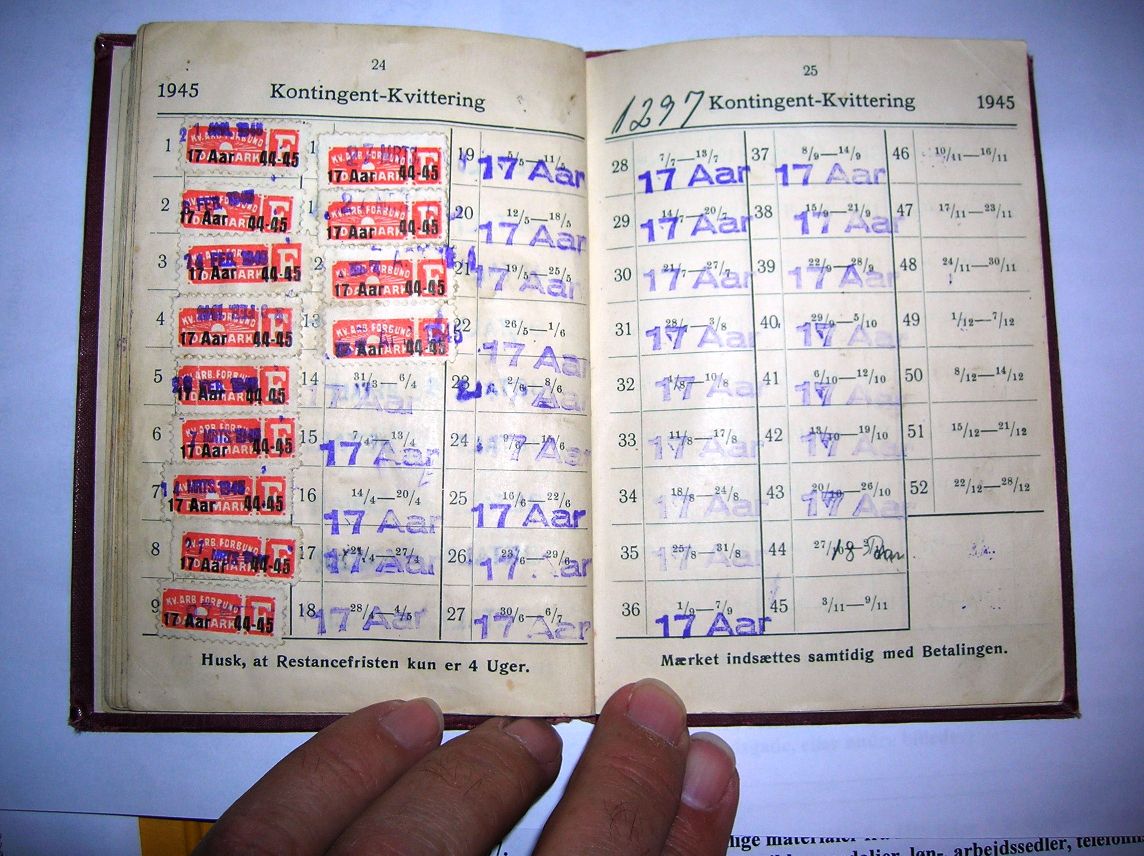 24
1945 Kontingent-Kvittering
1 17 Aar 44-45
KV. ARB. FORBUND
17 Aar 44-45
19 5/5—11/5 17 Aar
2 17 Aar 44-45
KV. ARB. FORBUND
17 Aar 44-45
20 12/5—18/5 17 Aar
3 17 Aar 44-45
KV. ARB. FORBUND
17 Aar 44-45
21 19/5—25/5 17 Aar
4 17 Aar 44-45
13 KV. ARB. FORBUND
44-45
22 26/5—1/6 17 Aar
5 17 Aar 44-45
14 31/3—6/4 17 Aar
23 2/6—8/6 17 Aar
6 17 Aar 44-45
15 7/4—13/4 17 Aar
24 17 Aar
7 17 Aar 44-45
16 14/4—20/4 17 Aar
25 16/6—22/6 17 Aar
8 ARB. FORBUND
17 Aar 44-45
17 21/4—27/4 17 Aar
26 23/6—29/6 17 Aar
9 KV. ARB. FORBUND
17 Aar 44-45
18 28/4—4/5 17 Aar
27 30/6—6/7 17 Aar
Husk, at Restancefristen kun er 4 Uger.
25
1297 Kontingent-Kvittering 1945
28 7/7—13/7 17 Aar
37 8/9—14/9 17 Aar
46 10/11—16/11
29 14/7—20/7 17 Aar
38 15/9—21/9 17 Aar
47 17/11—23/11
30 21/7—27/7 17 Aar
39 22/9—28/9 17 Aar
48 24/11—30/11
31 28/7—3/8 17 Aar
40 29/9—5/10 17 Aar
49 1/12—7/12
32 4/8—10/8 17 Aar
41 6/10—12/10 17 Aar
50 8/12—14/12
33 11/8—17/8 17 Aar
42 13/10—19/10 17 Aar
51 15/12—21/12
34 18/8—24/8 17 Aar
43 20/10—26/10 17 Aar
52 22/12—28/12
35 25/8—31/8 17 Aar
44 18 Aar
36 1/9—7/9 17 Aar
45 3/11—9/11
Mærket indsættes samtidig med Betalingen.
lige materialer
løn-, arbejdssedler,